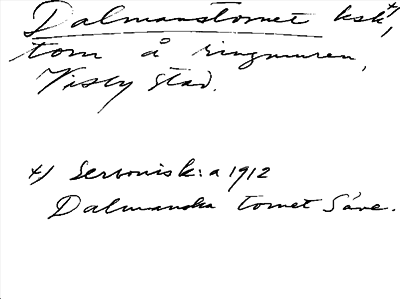 Dalmanstornet ksk x),
torn å ringmuren,
Visby stad.
x) Servonisk: a 1912
Dalmanska tornet Säve.